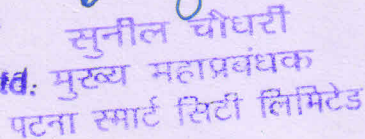 सुनील चौधरी
td. मुख्य महाप्रबंधक
पटना स्मार्ट सिटी लिमिटेड